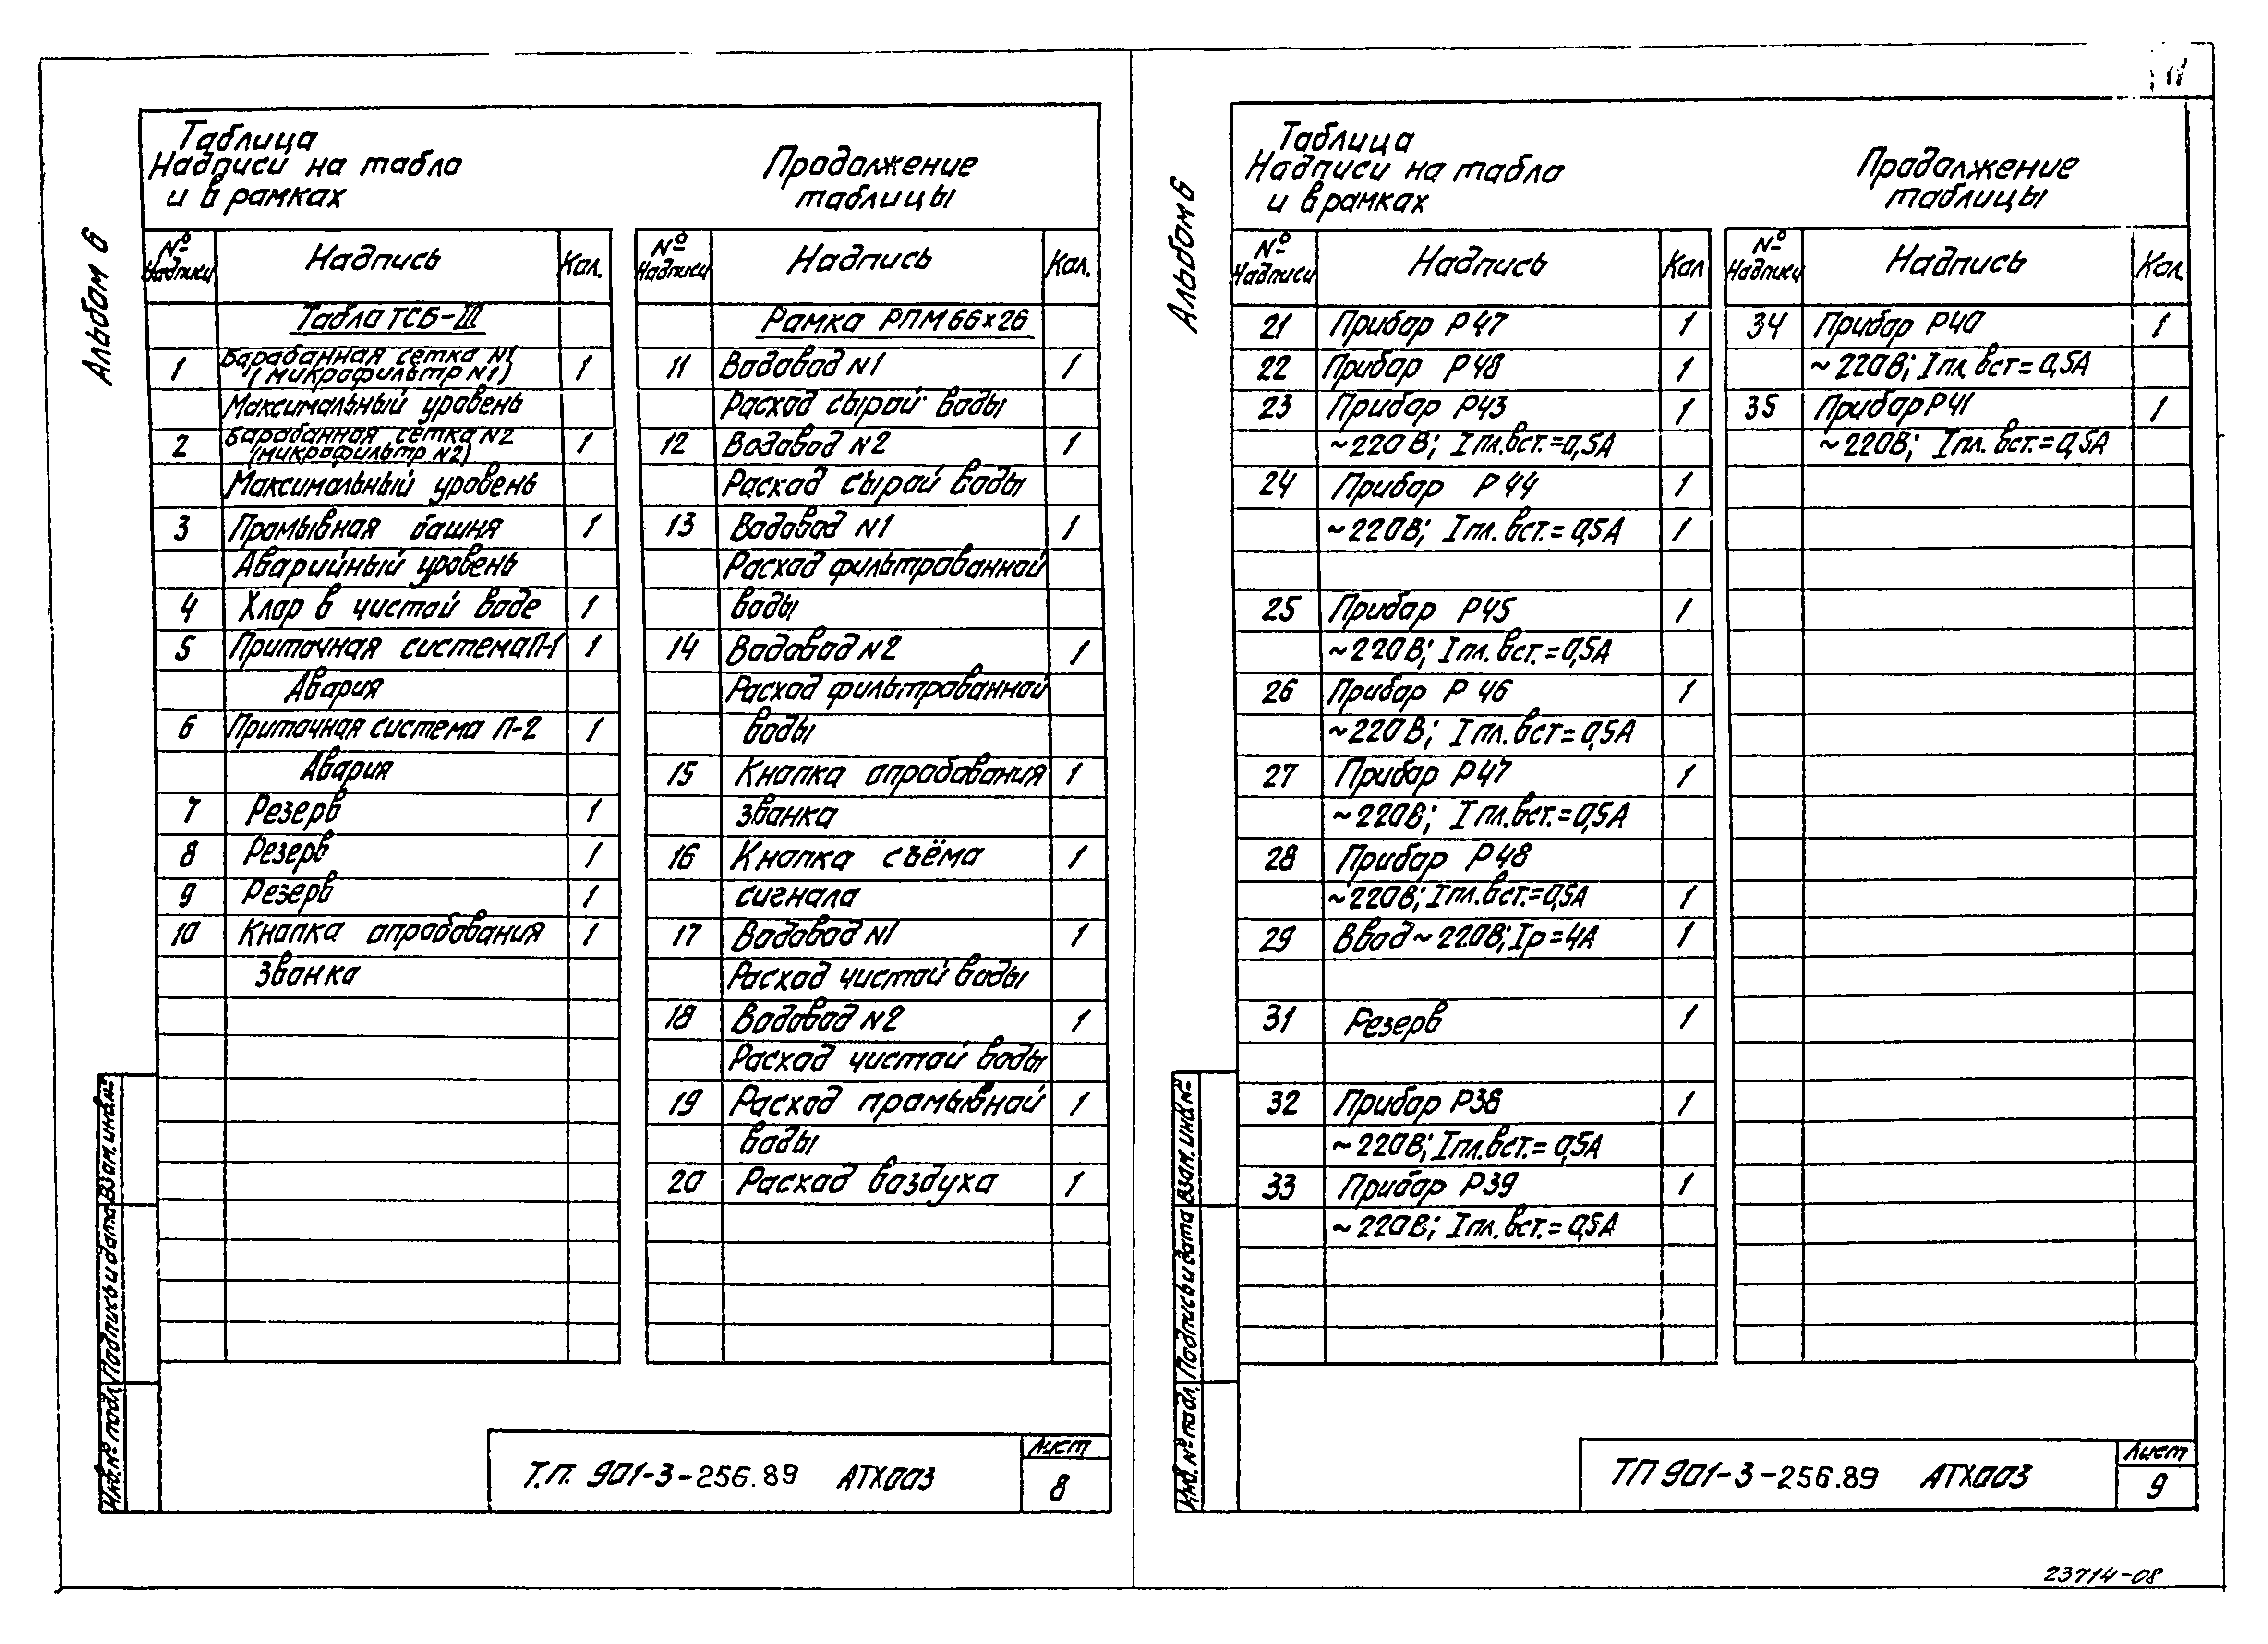 11
Альбом 6
Таблица
Надписи на табло
и в рамках
Продолжение
таблицы
№ надписи Надпись Кол.
Табло ТСБ-III
1 Барабанная сетка N1 1
(микрофильтр N1)
Максимальный уровень
2 Барабанная сетка N2 1
(микрофильтр N2)
Максимальный уровень
3 Промывная башня 1
Аварийный уровень
4 Хлор в чистой воде 1
5 Приточная система П-1 1
Авария
6 Приточная система П-2 1
Авария
7 Резерв 1
8 Резерв 1
9 Резерв 1
10 Кнопка опробования 1
звонка
№ надписи Надпись Кол.
Рамка РПМ 66×26
11 Водовод N1 1
Расход сырой воды
12 Водовод N2 1
Расход сырой воды
13 Водовод N1 1
Расход фильтрованной
воды
14 Водовод N2 1
Расход фильтрованной
воды
15 Кнопка опробования 1
звонка
16 Кнопка съёма 1
сигнала
17 Водовод N1 1
Расход чистой воды
18 Водовод N2 1
Расход чистой воды
19 Расход промывной 1
воды
20 Расход воздуха 1
Инв. № подл. Подпись и дата Взам. инв. №
Т.П. 901-3-256.89 АТХ003
Лист
8
Альбом 6
Таблица
Надписи на табло
и в рамках
Продолжение
таблицы
№ надписи Надпись Кол
21 Прибор Р47 1
22 Прибор Р48 1
23 Прибор Р43 1
~220В; Iпл.вст.=0,5А
24 Прибор Р44 1
~220В; Iпл.вст.=0,5А 1
25 Прибор Р45 1
~220В; Iпл.вст.=0,5А
26 Прибор Р46 1
~220В; Iпл.вст=0,5А
27 Прибор Р47 1
~220В; Iпл.вст.=0,5А
28 Прибор Р48
~220В; Iпл.вст.=0,5А 1
29 Ввод ~220В; Iр=4А 1
31 Резерв 1
32 Прибор Р38 1
~220В; Iпл.вст.=0,5А
33 Прибор Р39 1
~220В; Iпл.вст.=0,5А
№ надписи Надпись Кол.
34 Прибор Р40 1
~220В; Iпл.вст=0,5А
35 Прибор Р41 1
~220В; Iпл.вст.=0,5А
Инв. № подл. Подпись и дата Взам. инв №
ТП 901-3-256.89 АТХ003
Лист
9
23714-08